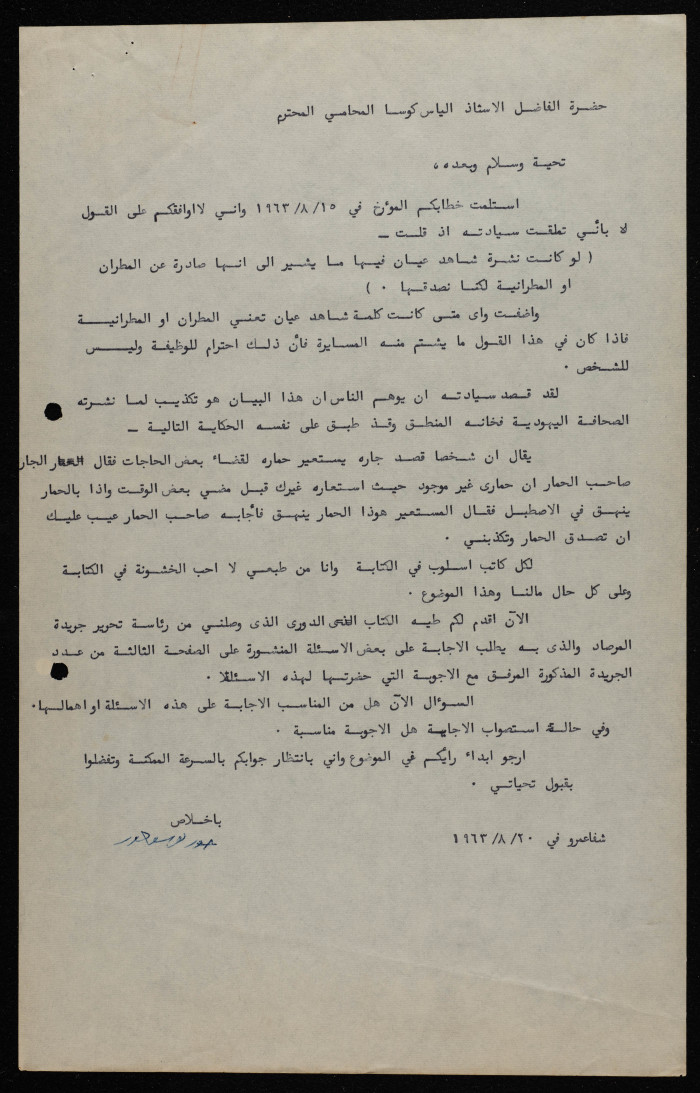 حضرة الفاضل الاستاذ الياس كوسا المحامي المحترم
تحية وسلام وبعده،
استلمت خطابكم المؤرخ في ١٩٦٣/٨/١٥ واني لااوافقكم على القول
لا بأني تملقت سيادته اذ قلت ــ
( لو كانت نشرة شاهد عيان فيها ما يشير الى انها صادرة عن المطران
او المطرانية لكنا نصدقها ٠ )
واضفت واى متى كانت كلمة شاهد عيان تعني المطران او المطرانية
فاذا كان في هذا القول ما يشتم منه المسايرة فأن ذلك احترام للوظيفة وليس
للشخص ٠
لقد قصد سيادته ان يوهم الناس ان هذا البيان هو تكذيب لما نشرته
الصحافة اليهودية فخانه المنطق وقد طبق على نفسه الحكاية التالية ــ
يقال ان شخصا قصد جاره يستعير حماره لقضاء بعض الحاجات فقال الجار
صاحب الحمار ان حمارى غير موجود حيث استعاره غيرك قبل مضي بعض الوقت واذا بالحمار
ينهق في الاصطبل فقال المستعير هوذا الحمار ينهق فأجابه صاحب الحمار عيب عليك
ان تصدق الحمار وتكذبني ٠
لكل كاتب اسلوب في الكتابة وانا من طبعي لا احب الخشونة في الكتابة
وعلى كل حال مالنا وهذا الموضوع ٠
الآن اقدم لكم طيه الكتاب الدورى الذى وصلني من رئاسة تحرير جريدة
المرصاد والذى به يطلب الاجابة على بعض الاسئلة المنشورة على الصفحة الثالثة من عدد
الجريدة المذكورة المرفق مع الاجوبة التي حضرتها لهذه الاسئلة ٠
السوؤال الآن هل من المناسب الاجابة على هذه الاسئلة او اهمالها٠
وفي حالة استصواب الاجابة هل الاجوبة مناسبة ٠
ارجو ابداء رايكم في الموضوع واني بانتظار جوابكم بالسرعة الممكنة وتفضلوا
بقبول تحياتي ٠
باخلاص
شفاعمرو في ١٩٦٣/٨/٢٠